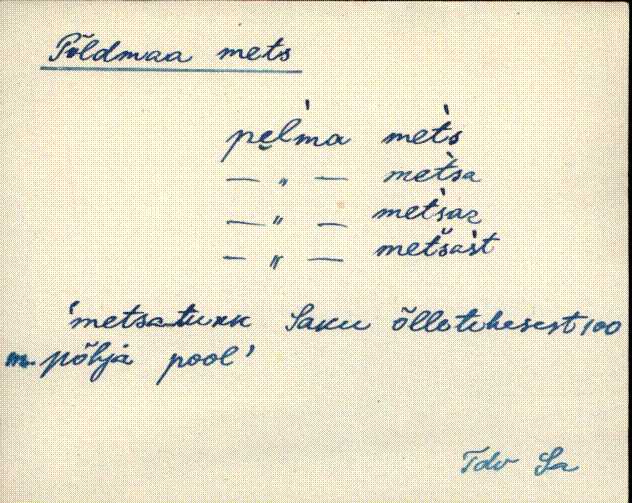 Põldmaa mets
pe̬l'ma met's
— „ — met'sa
— „ — met'sas
— „ — met'sast
'metsatukk Saku õlletehasest 100
m põhja pool'
Tdv Sa